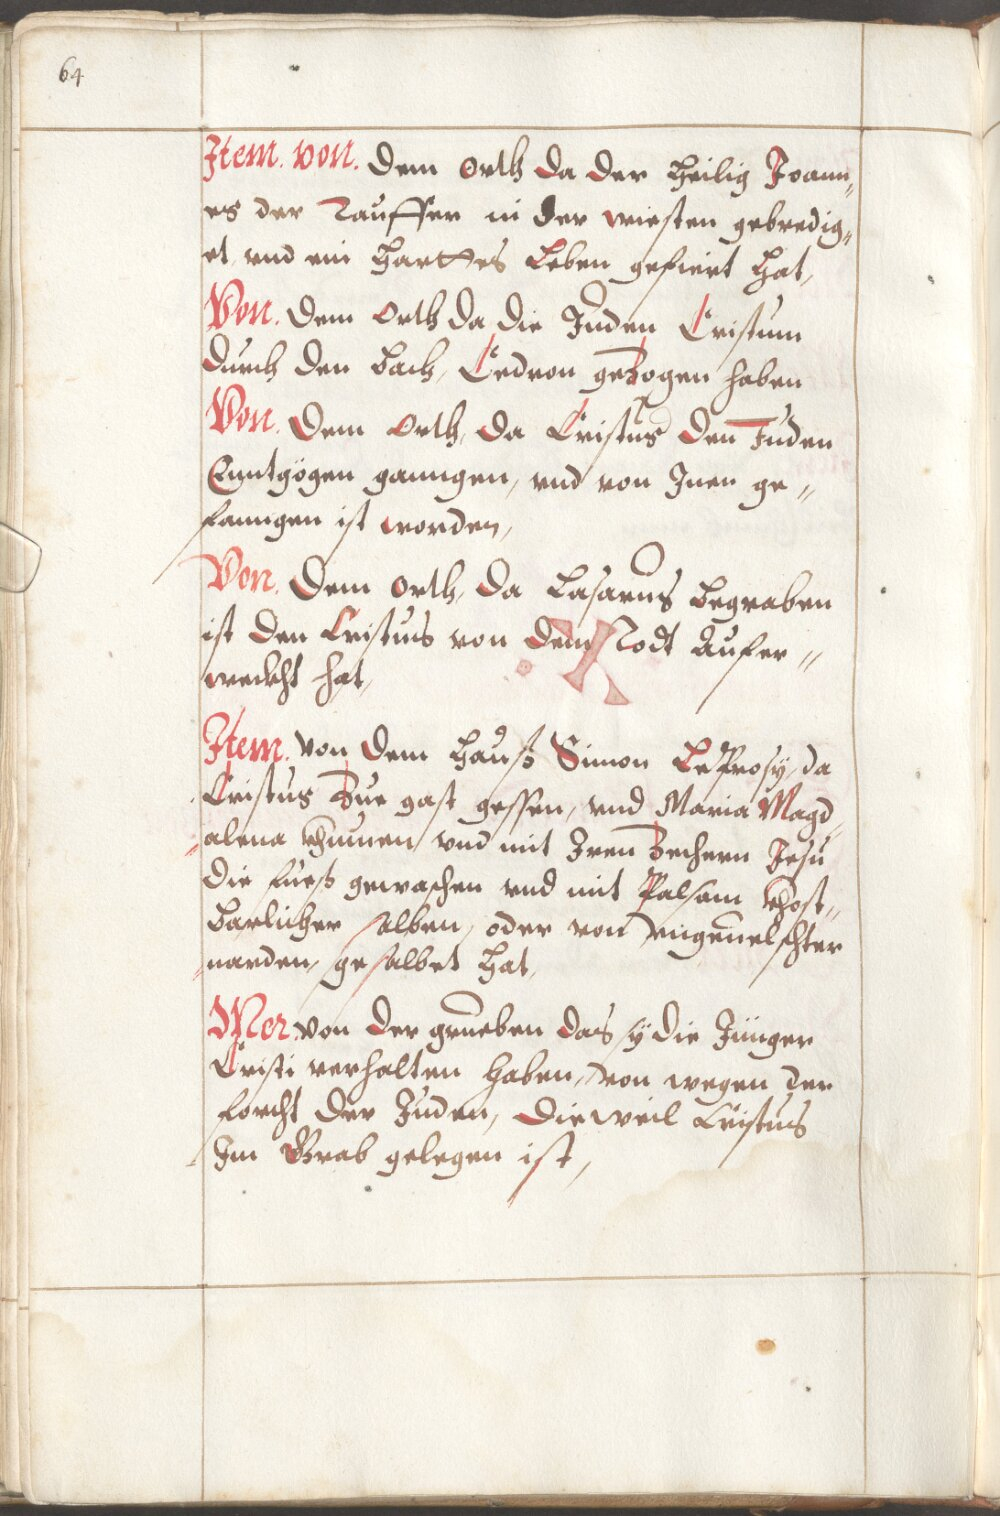 64
Item. von. dem orth da der heilig Joann„
es der Tauffer in der wiesten gebredig„
et, vnd ein harttes Leben gefiert hat,
Von. dem orth da die Juden Cristum
durch den bach, Cedron gezogen haben
Von. dem orth, da Cristus den Juden
Enntgögen ganngen, vnd von Inen ge„
fanngen ist worden,
Von. dem orth, da Lasarus begraben
ist den Cristus von dem Todt aufer„
weckht hat,
Item. von dem hauß Simon Leprosÿ, da
Cristus zue gast gessen, vnd Maria Magd„
alena khumen, vnd mit Iren Zechern Jesu
die fueß gewaschen vnd mit Palsam khost„
barlicher salben, oder von
narden, gesalbet hat,
Mer. von der grueben das sÿ die Jünger
Cristi verhalten haben, von wegen der
forcht der Juden, die weil Cristus
Im Grab gelegen ist,